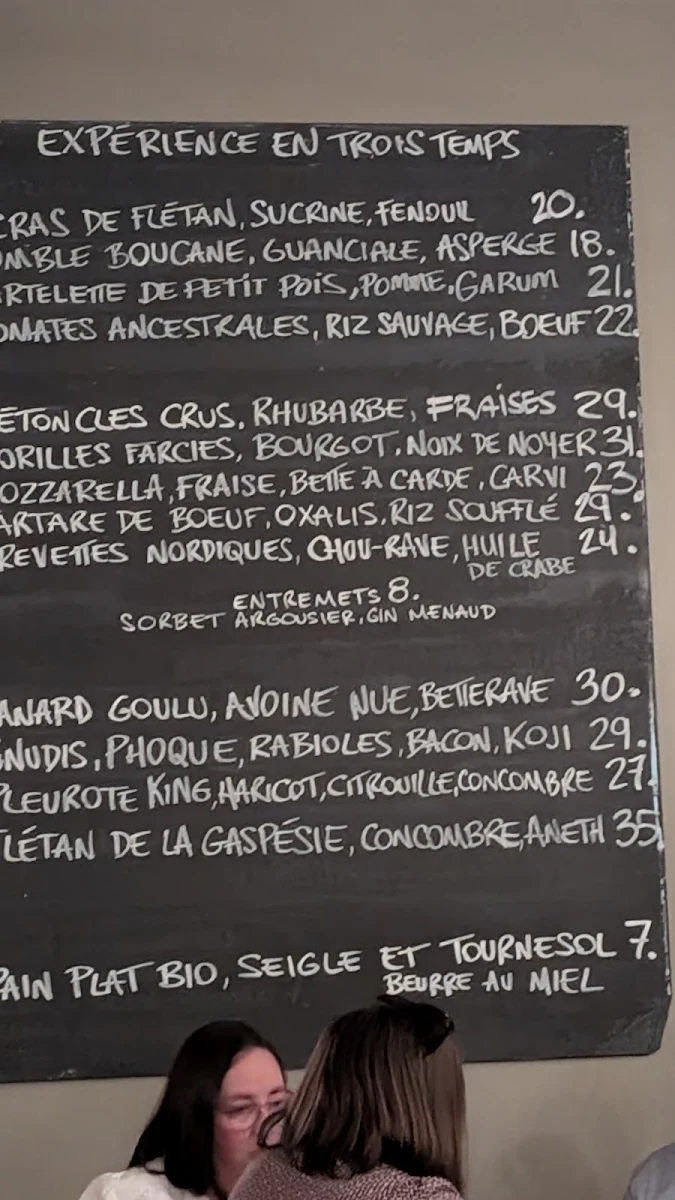 EXPÉRIENCE EN TROIS TEMPS
CRAS DE FLÉTAN, SUCRINE, FENOUIL 20.
MBLE BOUCANE, GUANCIALE, ASPERGE 18.
RTELETTE DE PETIT POIS, POMME, GARUM 21.
OMATES ANCESTRALES, RIZ SAUVAGE, BOEUF 22.
ÉTONCLES CRUS, RHUBARBE, FRAISES 29.
ORILLES FARCIES, BOURGOT, NOIX DE NOYER 31.
OZZARELLA, FRAISE, BETTE À CARDE, CARVI 23.
ARTARE DE BOEUF, OXALIS, RIZ SOUFFLÉ 29.
REVETTES NORDIQUES, CHOU-RAVE, HUILE 24.
DE CRABE
ENTREMETS 8.
SORBET ARGOUSIER, GIN MENAUD
ANARD GOULU, AVOINE NUE, BETTERAVE 30.
NUDIS, PHOQUE, RABIOLES, BACON, KOJI 29.
LEUROTE KING, HARICOT, CITROUILLE, CONCOMBRE 27.
LÉTAN DE LA GASPÉSIE, CONCOMBRE, ANETH 35.
PAIN PLAT BIO, SEIGLE ET TOURNESOL 7.
BEURRE AU MIEL